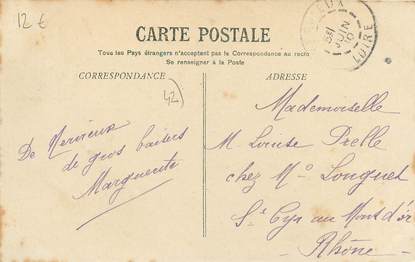 12 €
CARTE POSTALE
Tous les Pays étrangers n'acceptent pas la Correspondance au recto
Se renseigner à la Poste
CORRESPONDANCE
42
De Nervieux
de gros baisers
Marguerite
ADRESSE
JUIN
LOIRE
Mademoiselle
M Louise Prelle
chez Mº Longuet
St Cyr au Mont d'or
Rhône